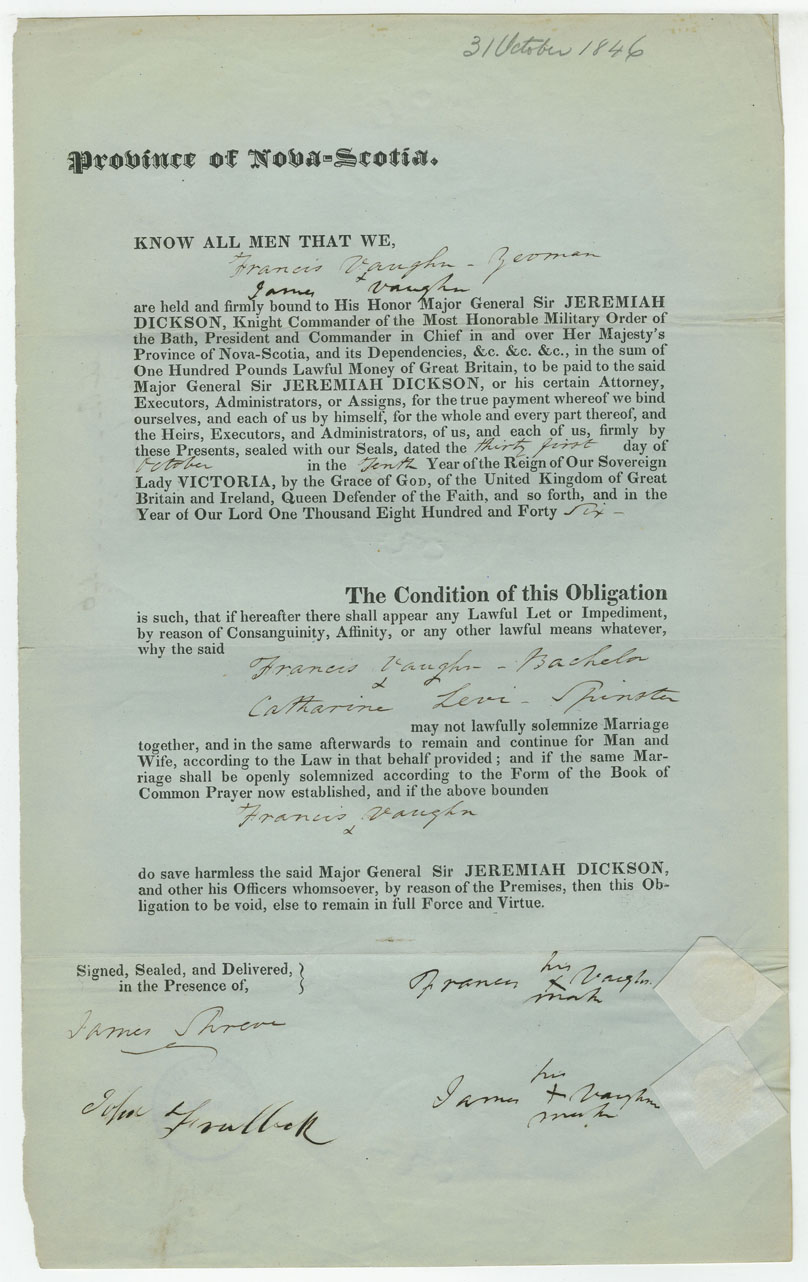 31 October 1846
Province of Nova-Scotia.
KNOW ALL MEN THAT WE,
Francis Vaughn - Yeoman
&
James Vaughn
are held and firmly bound to His Honor Major General Sir JEREMIAH
DICKSON, Knight Commander of the Most Honorable Military Order of
the Bath, President and Commander in Chief in and over Her Majesty's
Province of Nova-Scotia, and its Dependencies, &c. &c. &c., in the sum of
One Hundred Pounds Lawful Money of Great Britain, to be paid to the said
Major General Sir JEREMIAH DICKSON, or his certain Attorney,
Executors, Administrators, or Assigns, for the true payment whereof we bind
ourselves, and each of us by himself, for the whole and every part thereof, and
the Heirs, Executors, and Administrators, of us, and each of us, firmly by
these Presents, sealed with our Seals, dated the thirty first day of
October in the Tenth Year of the Reign of Our Sovereign
Lady VICTORIA, by the Grace of GOD, of the United Kingdom of Great
Britain and Ireland, Queen Defender of the Faith, and so forth, and in the
Year of Our Lord One Thousand Eight Hundred and Forty Six -
The Condition of this Obligation
is such, that if hereafter there shall appear any Lawful Let or Impediment,
by reason of Consanguinity, Affinity, or any other lawful means whatever,
why the said
Francis Vaughn - Bachelor
&
Catharine Levi - Spinster
may not lawfully solemnize Marriage
together, and in the same afterwards to remain and continue for Man and
Wife, according to the Law in that behalf provided; and if the same Mar-
riage shall be openly solemnized according to the Form of the Book of
Common Prayer now established, and if the above bounden
Francis Vaughn
&
do save harmless the said Major General Sir JEREMIAH DICKSON,
and other his Officers whomsoever, by reason of the Premises, then this Ob-
ligation to be void, else to remain in full Force and Virtue.
Signed, Sealed, and Delivered,
in the Presence of,
his
Francis X Vaughn
mark
James Shreve
his
James X Vaughn
mark
John